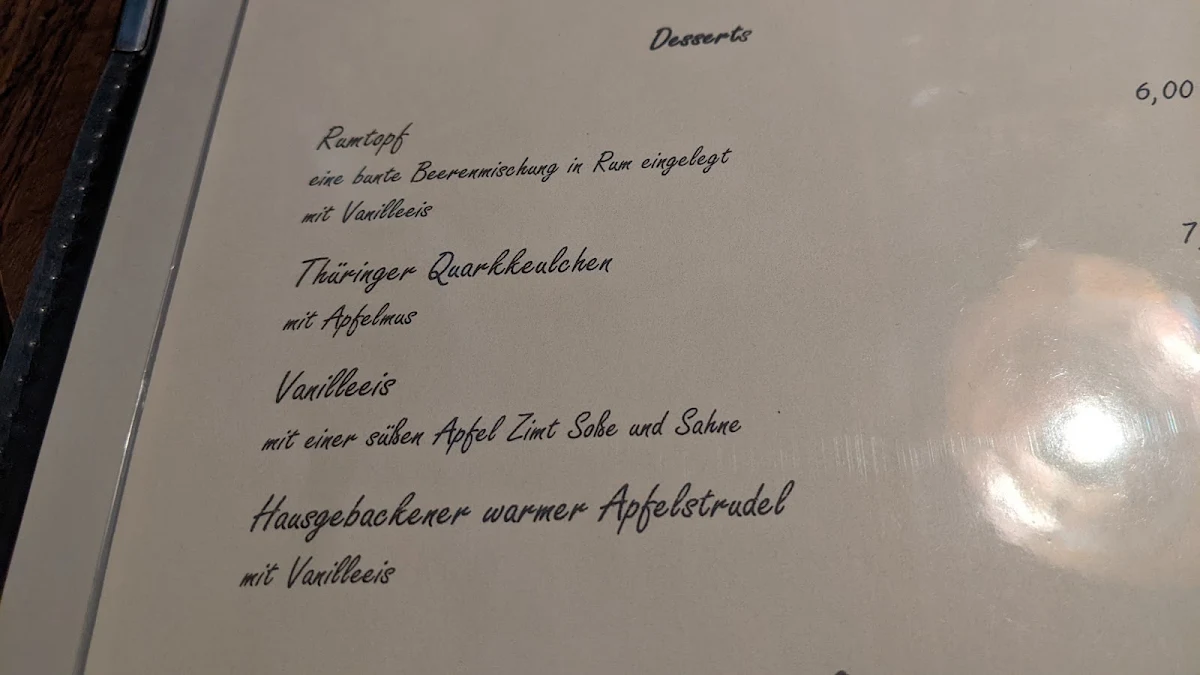 Desserts
6,00
Rumtopf
eine bunte Beerenmischung in Rum eingelegt
mit Vanilleeis
7,
Thüringer Quarkkeulchen
mit Apfelmus
Vanilleeis
mit einer süßen Apfel Zimt Soße und Sahne
Hausgebackener warmer Apfelstrudel
mit Vanilleeis